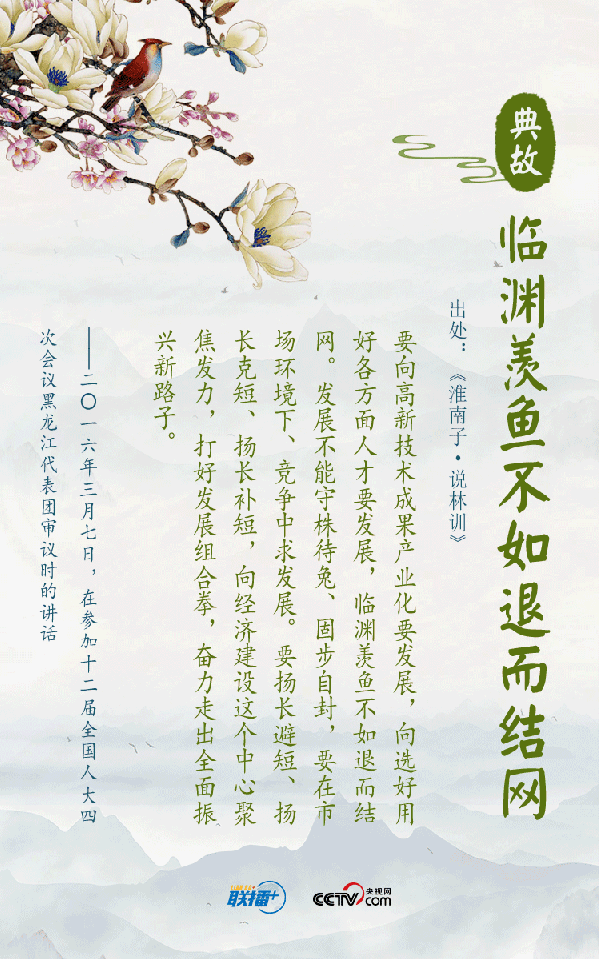 典故
临渊羡鱼不如退而结网
出处：《淮南子·说林训》
要向高新技术成果产业化要发展，向选好用
好各方面人才要发展，临渊羡鱼不如退而结
网。发展不能守株待兔、固步自封，要在市
场环境下、竞争中求发展。要扬长避短、扬
长克短、扬长补短，向经济建设这个中心聚
焦发力，打好发展组合拳，奋力走出全面振
兴新路子。
——二〇一六年三月七日，在参加十二届全国人大四
次会议黑龙江代表团审议时的讲话
联播+
CCTV央视网
com